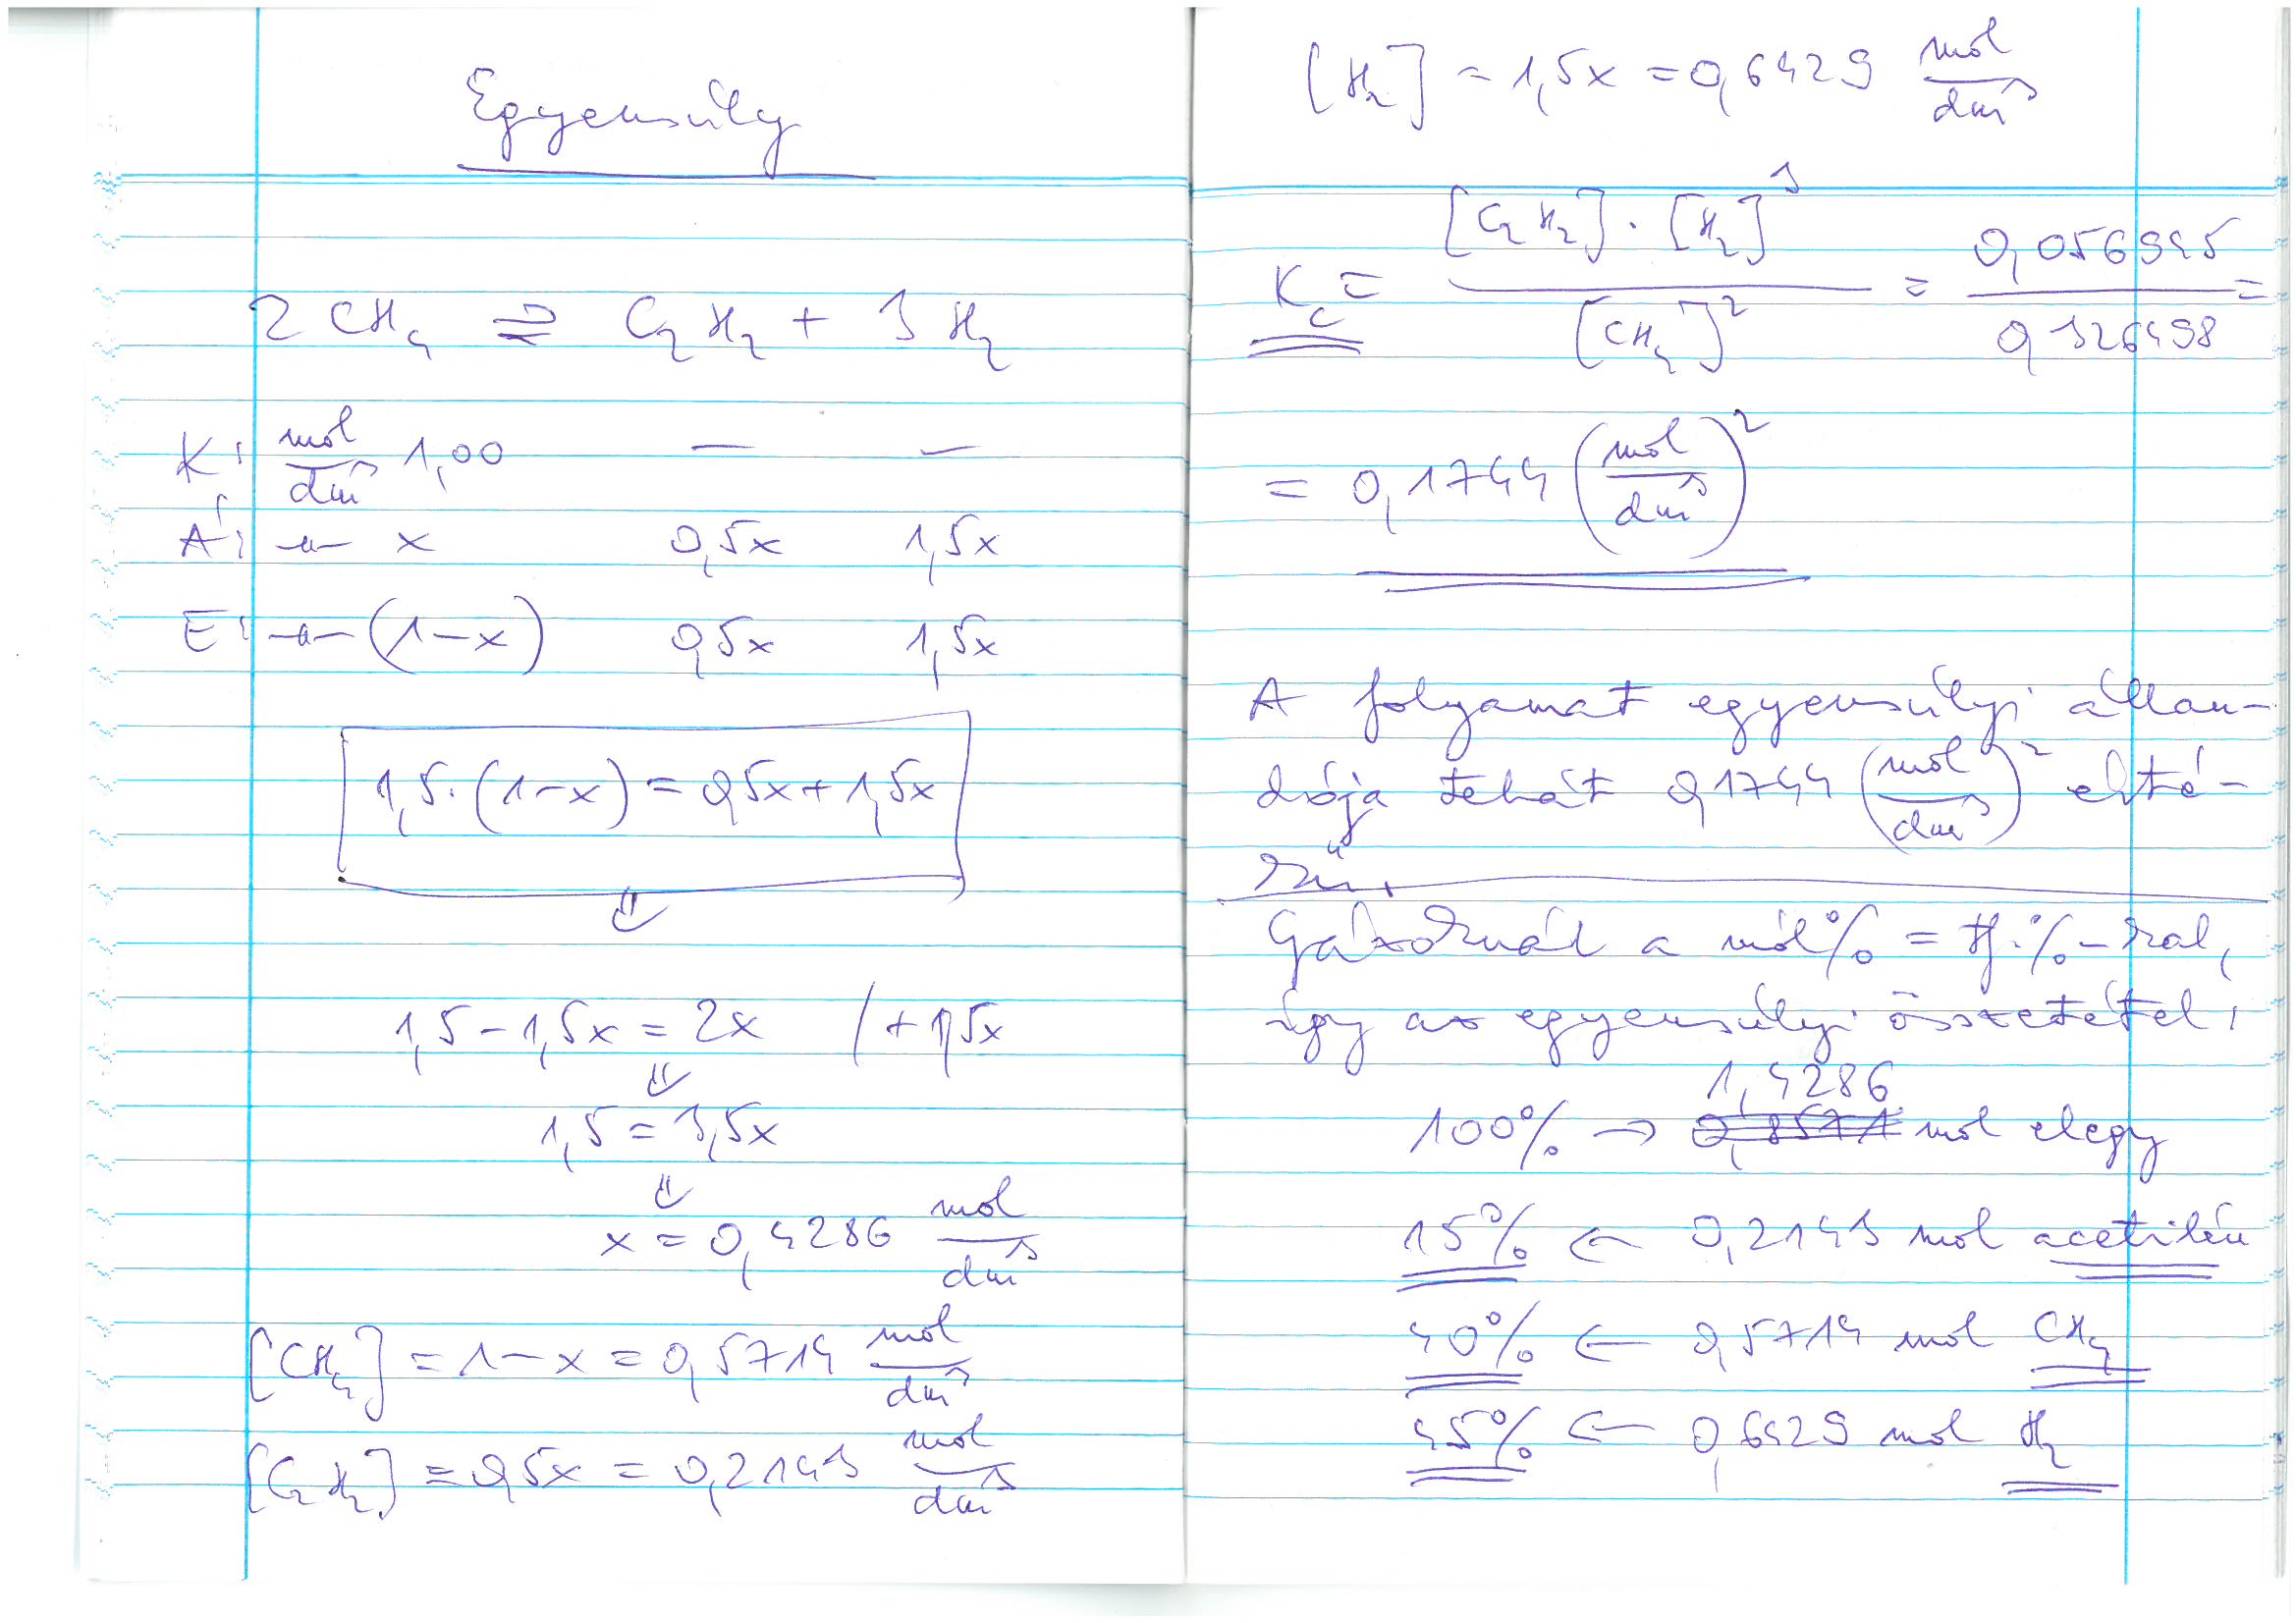 Egyensúly
2 CH₄ ⇌ C₂H₂ + 3 H₂
K: mol/dm³ 1,00 — —
Á: -"- x 0,5x 1,5x
E: -"- (1-x) 0,5x 1,5x
1,5·(1-x) = 0,5x + 1,5x
⇓
1,5 - 1,5x = 2x /+1,5x
⇓
1,5 = 3,5x
⇓
x = 0,4286 mol/dm³
[CH₄] = 1-x = 0,5714 mol/dm³
[C₂H₂] = 0,5x = 0,2143 mol/dm³
[H₂] = 1,5x = 0,6429 mol/dm³
K_c = [C₂H₂]·[H₂]³ / [CH₄]² = 0,056945 / 0,326498 =
= 0,1744 (mol/dm³)²
A folyamat egyensúlyi állan-
dója tehát 0,1744 (mol/dm³)² elté-
kű.
Gázoknál a mól% = tf.%-kal,
így az egyensúlyi összetétel:
1,4286
100% → 0,8571 mol elegy
15% ← 0,2143 mol acetilén
40% ← 0,5714 mol CH₄
45% ← 0,6429 mol H₂